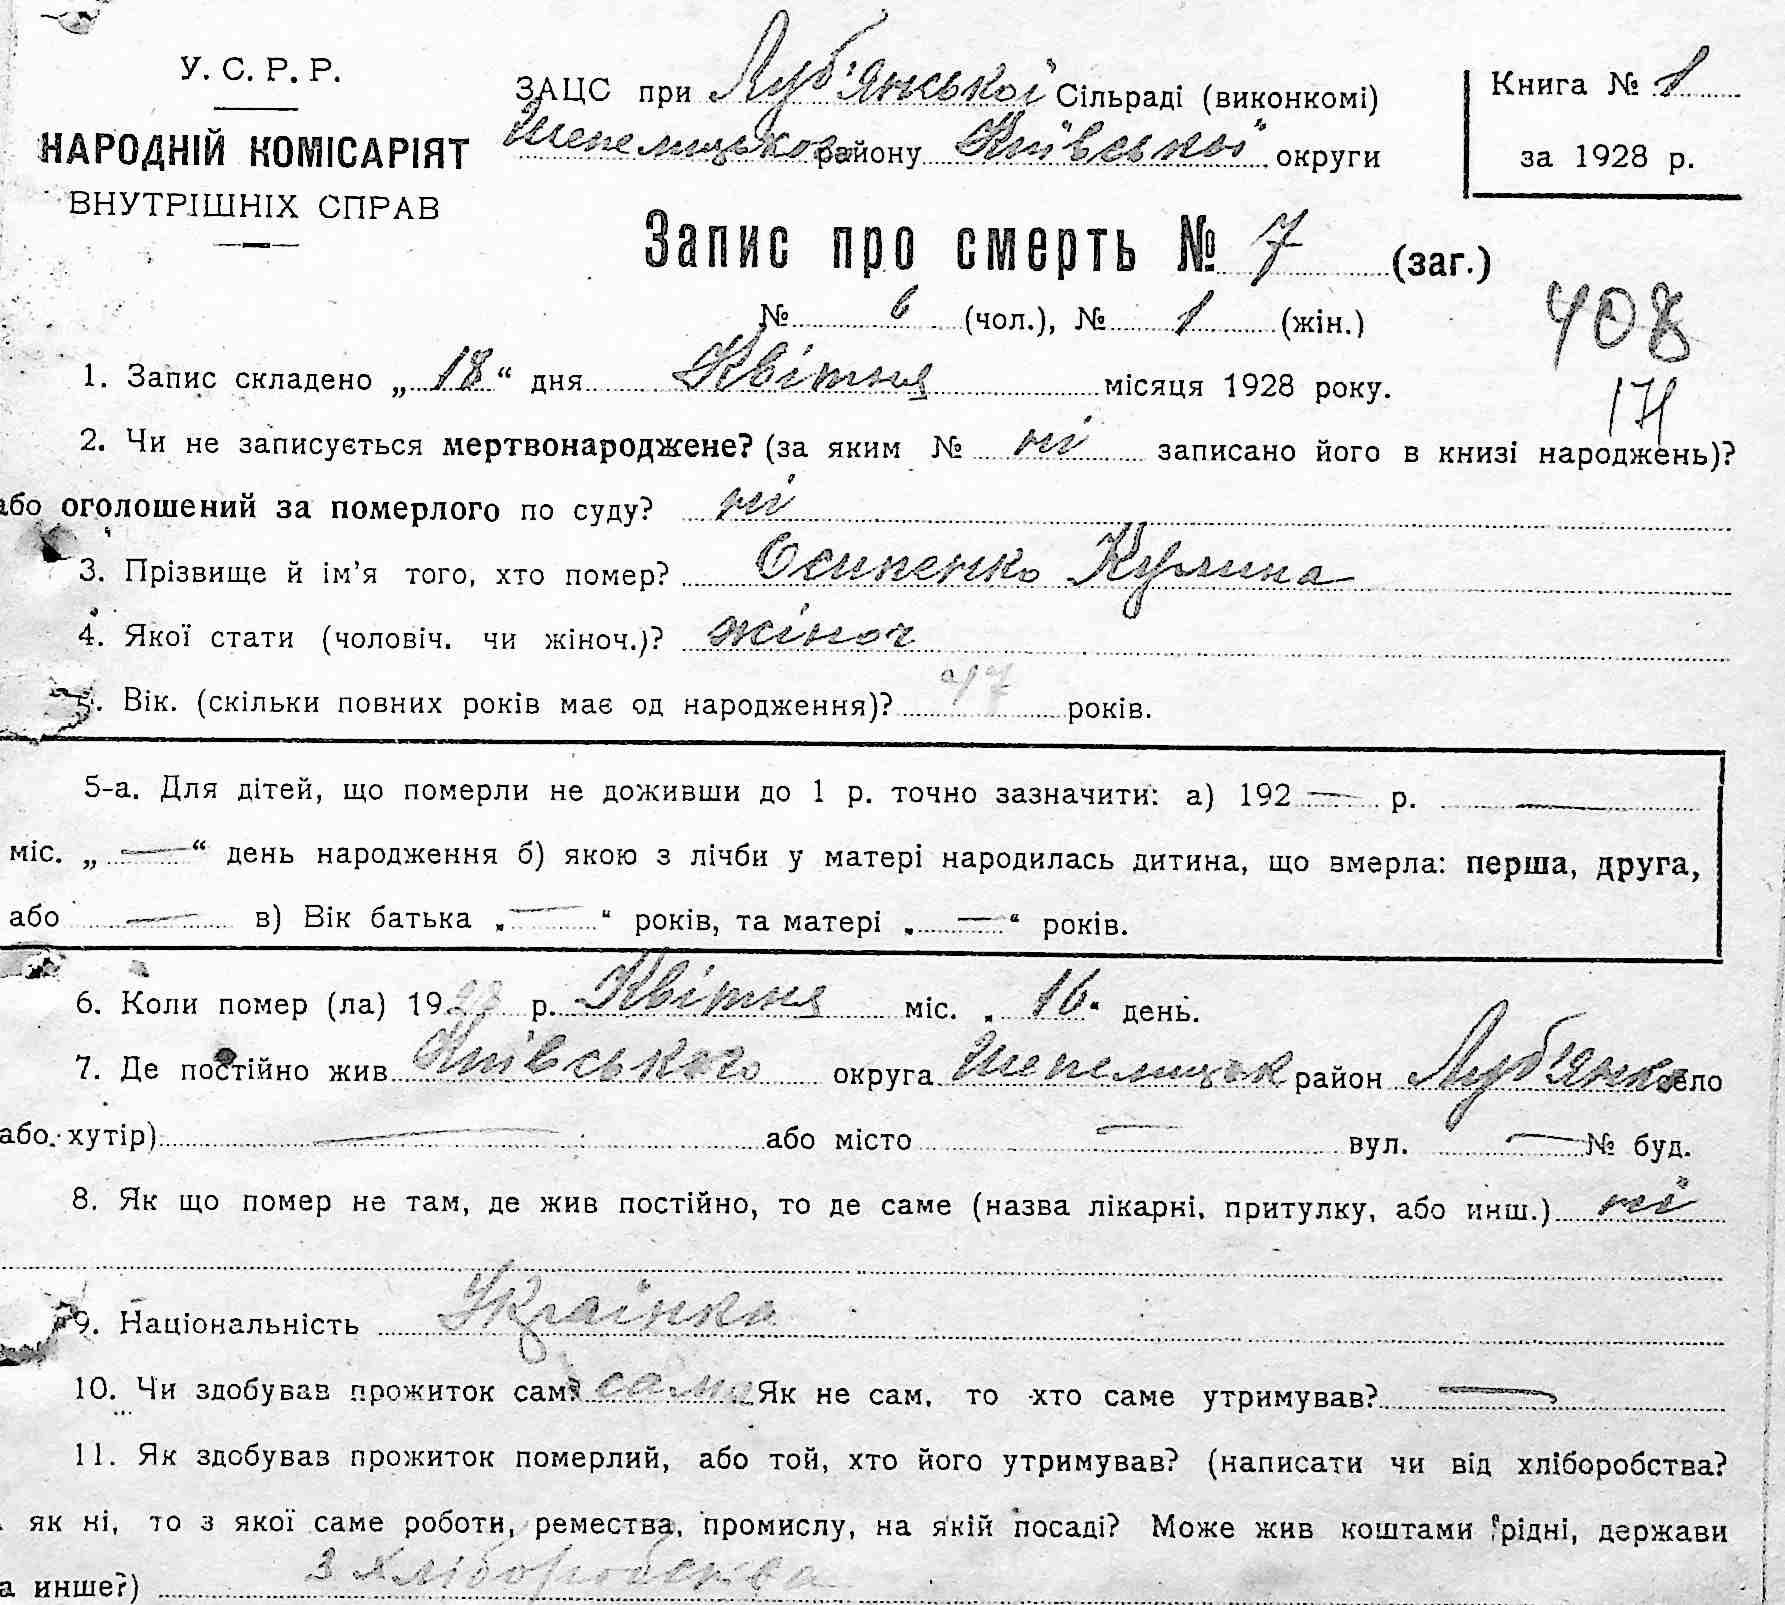 У. С. Р. Р.
НАРОДНІЙ КОМІСАРІЯТ
ВНУТРІШНІХ СПРАВ
ЗАЦС при Луб'янської Сільраді (виконкомі)
Шепелицького району Київської округи
Книга № 1
за 1928 р.
Запис про смерть № 7 (заг.)
№ 6 (чол.), № 1 (жін.)
408
174
1. Запис складено „18“ дня Квітня місяця 1928 року.
2. Чи не записується мертвонароджене? (за яким № ні записано його в книзі народжень)?
або оголошений за померлого по суду? ні
3. Прізвище й ім'я того, хто помер? Осипенко Кулина
4. Якої стати (чоловіч. чи жіноч.)? жіноч
5. Вік. (скільки повних років має од народження)? 47 років.
5-а. Для дітей, що померли не доживши до 1 р. точно зазначити: а) 192 — р. —
міс. „ — “ день народження б) якою з лічби у матері народилась дитина, що вмерла: перша, друга,
або — в) Вік батька „ — “ років, та матері „ — “ років.
6. Коли помер (ла) 1928 р. Квітня міс. „16“ день.
7. Де постійно жив Київського округа Шепелицьк район Луб'янка село
або хутір) — або місто — вул. — № буд.
8. Як що помер не там, де жив постійно, то де саме (назва лікарні, притулку, або инш.) ні
9. Національність Українка
10. Чи здобував прожиток сам? сама Як не сам, то хто саме утримував? —
11. Як здобував прожиток померлий, або той, хто його утримував? (написати чи від хліборобства?
як ні, то з якої саме роботи, ремества, промислу, на якій посаді? Може жив коштами рідні, держави
а инше?) З хліборобства